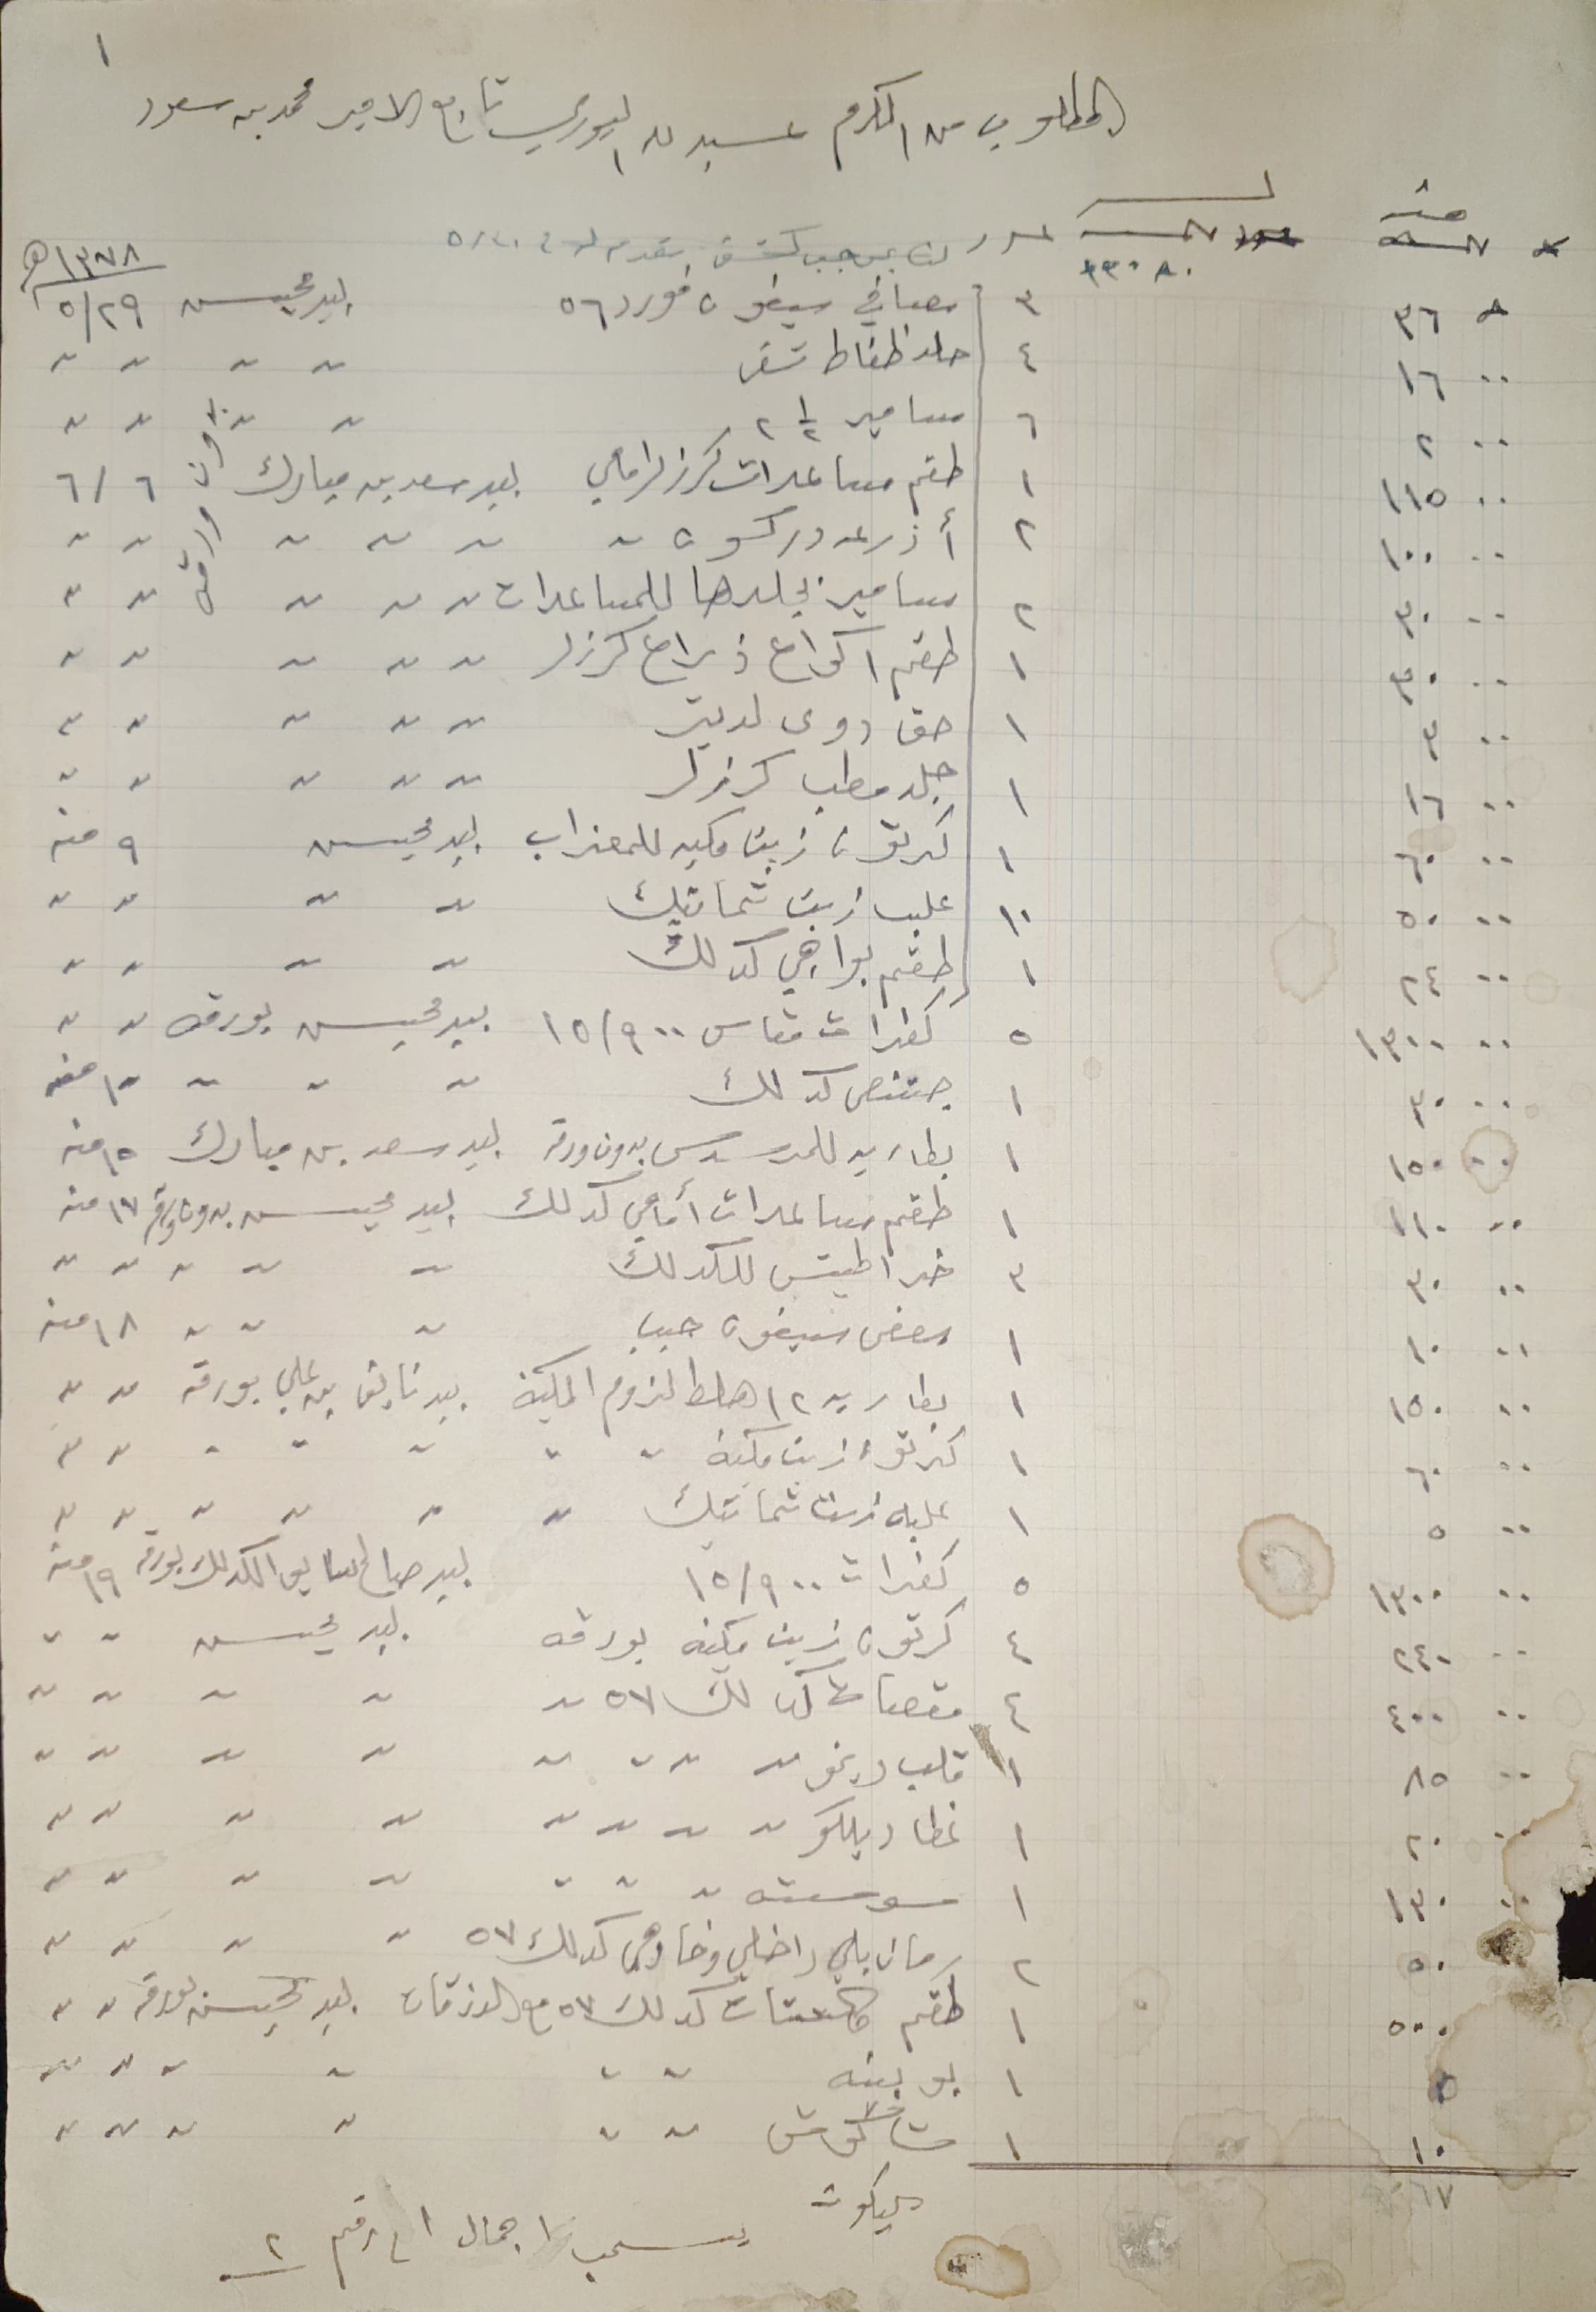 ١
المطلوب من المكرم عبد الله اليوريسي تابع الامير محمد بن سعود
عدد لنا بموجب كشف مقدم له في
١٣٧٨هـ
٣٦ ٣ مصافي سيفون فورد ٥٦ بيد محيسن ٥/٢٩
١٦ ٤ جلد ظغاط شفر " " " "
٢ ٦ مسامير ٢ ١/٢ " " " "
١١٥ ١ طقم مساعدات كرزلر امامي بيد سعد بن مبارك ٦ / ٦
١٠٠ ٢ أذرعه دركسون " " " " " "
٣٠ ٢ مسامير بجلدها للمساعدات " " " " "
٣٠ ١ طقم اكواع ذراع كرزلر " " " " "
٣ ١ حق دوى لديتر " " " " "
١٦ ١ جلد مطب كرزلر " " " " "
٦٠ ١ كرتون زيت مكينه للمعزاب بيد محيسن ٩ منه
٥٠ ١٠ علب زيت تماتيك " " " "
٢٤ ١ طقم بواجي كدلك " " " "
١٣٠٠ ٥ كفرات مقاس ١٥/٩٠٠ بيد محيسن بورقه " "
٣٠ ١ جنص كدلك " " " ١٠ منه
١٥٠ ١ بطاريه للمرسدس بدون ورقه بيد سعد بن مبارك ١٥ منه
١١٠ ١ طقم مساعدات أمامي كدلك بيد محيسن بدون ورقه ١٧ منه
٣٠ ٣ خراطيش للكدلك " " " " "
١٠ ١ مصفى سيفون جيب " " " ١٨ منه
١٥٠ ١ بطاريه ١٢ هلط لزوم المكينة بيد نايف بن علي بورقه " "
٦٠ ١ كرتون زيت مكينة " " " " " " "
٥ ١ علبه زيت تماتيك " " " " " "
١٣٠٠ ٥ كفرات ١٥/٩٠٠ بيد صالح سايق الكدلك بورقه ١٩ منه
٢٤٠ ٤ كرتون زيت مكينه بورقه بيد محيسن " "
٤٠٠ ٤ مقصات كدلك ٥٧ " " " " "
٨٥ ١ قلب دينمو " " " " " " "
٢٠ ١ غطا ديلكو " " " " " " " "
١٣٠ ١ سوسته " " " " " " "
٥٠ ٢ رمان بلي داخلي وخارجي كدلك ٥٧ " " " "
٥٠٠ ١ طقم كدلك ٥٧ مع الدرقات بيد محيسن بورقه " "
١ بوبينه " " " " " "
١٠ ١ شاكوش " " " " " "
ديلكوت
يسحب اجمال الى رقم ٢